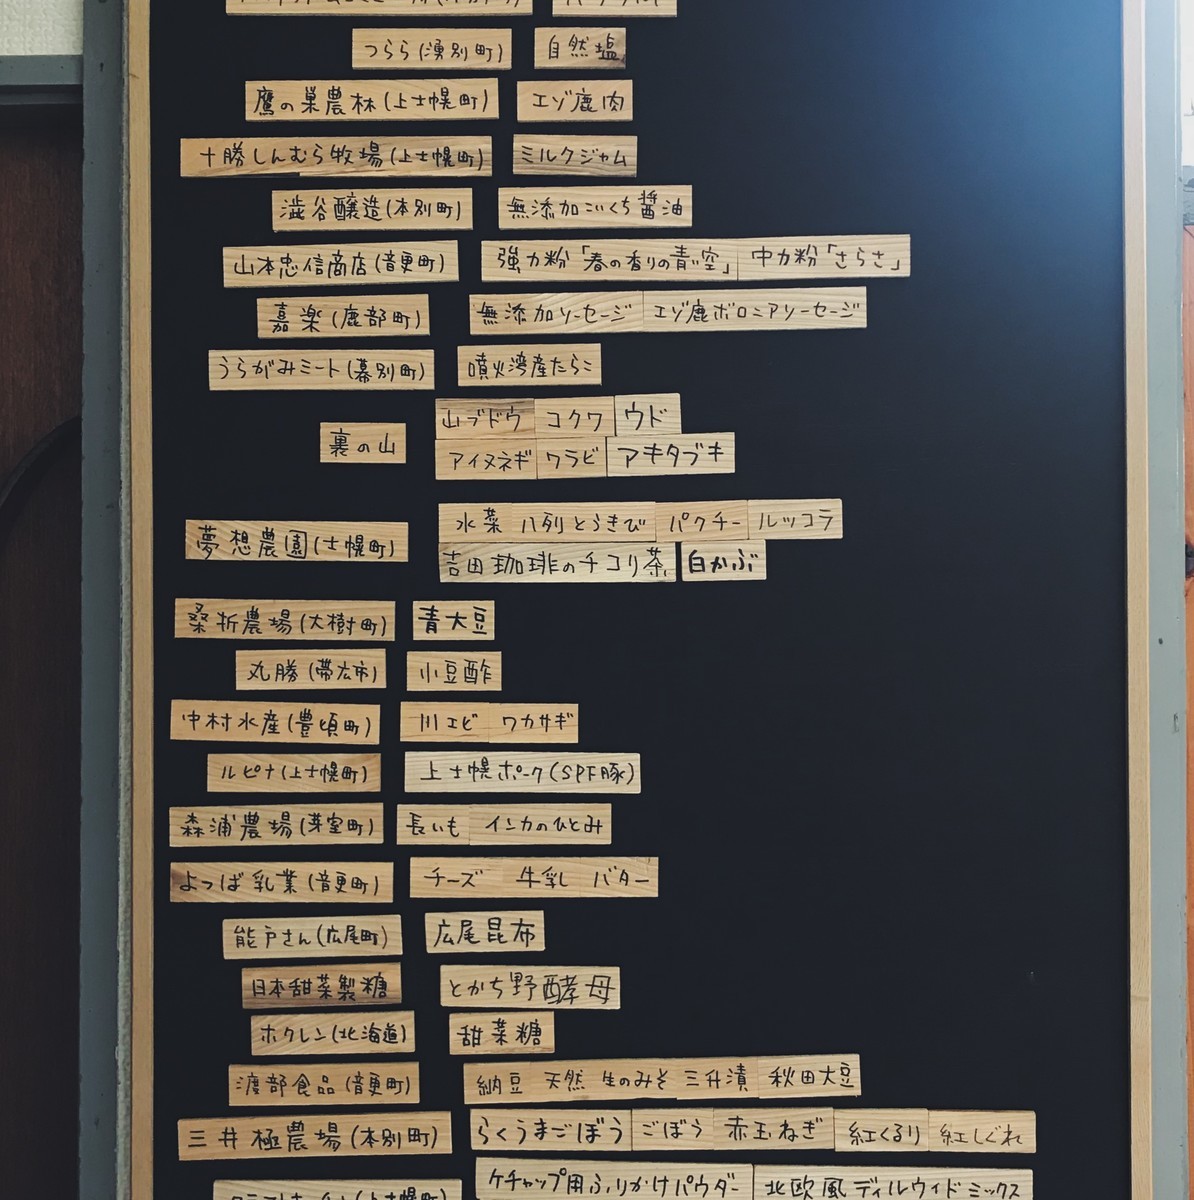 つらら(湧別町) 自然塩
鷹の巣農林(上士幌町) エゾ鹿肉
十勝しんむら牧場(上士幌町) ミルクジャム
澁谷醸造(本別町) 無添加こいくち醤油
山本忠信商店(音更町) 強力粉「春の香りの青い空」 中力粉「さらさ」
嘉楽(鹿部町) 無添加ソーセージ エゾ鹿ボロニアソーセージ
うらがみミート(幕別町) 噴火湾産たらこ
裏の山 山ブドウ コクワ ウド
アイヌネギ ワラビ アキタブキ
夢想農園(士幌町) 水菜 八列とうきび パクチー ルッコラ
吉田珈琲のチコリ茶 白かぶ
桑折農場(大樹町) 青大豆
丸勝(帯広市) 小豆酢
中村水産(豊頃町) 川エビ ワカサギ
ルピナ(上士幌町) 上士幌ポーク(SPF豚)
森浦農場(芽室町) 長いも インカのひとみ
よつば乳業(音更町) チーズ 牛乳 バター
能戸さん(広尾町) 広尾昆布
日本甜菜製糖 とかち野酵母
ホクレン(北海道) 甜菜糖
渡部食品(音更町) 納豆 天然 生のみそ 三升漬 秋田大豆
三井極農場(本別町) らくうまごぼう ごぼう 赤玉ねぎ 紅くるり 紅しぐれ
ケチャップ用ふりかけパウダー 北欧風ディルウィドミックス